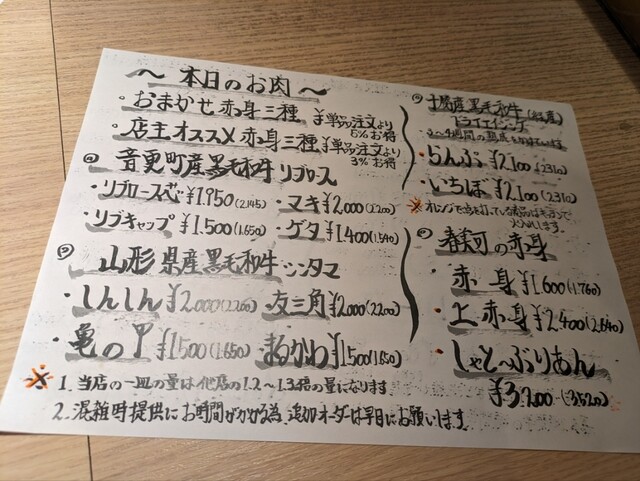 〜 本日のお肉 〜
・おまかせ赤身三種 ※単品注文より
5%お得
・店主オススメ赤身三種 ※単品注文より
3%お得
音更町産黒毛和牛リブロース
・リブロース芯 ¥1,950(2,145) ・マキ ¥2,000(2,200)
・リブキャップ ¥1,500(1,650) ・ゲタ ¥1,400(1,540)
山形県産黒毛和牛シンタマ
・しんしん ¥2,000(2,200) ・友三角 ¥2,000(2,200)
・亀の甲 ¥1,500(1,650) ・まるかわ ¥1,500(1,650)
※ 1. 当店の一皿の量は他店の1.2〜1.3倍の量になります
2. 混雑時提供にお時間がかかる為、追加オーダーは早目にお願いします。
十勝産黒毛和牛
ドライエイジング
・らんぷ ¥2,100(2,310)
・いちぼ ¥2,100(2,310)
の赤身
・赤身 ¥1,600(1,760)
・上赤身 ¥2,400(2,640)
・しゃとーぶりあん
¥3,200(3,520)